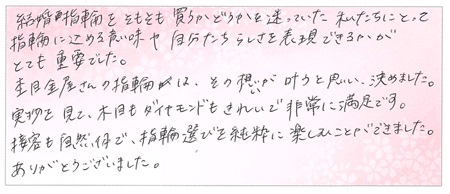 結婚指輪をそもそも買うかどうかを迷っていた私たちにとって
指輪に込める意味や自分たちらしさを表現できるかが
とても重要でした。
杢目金屋さんの指輪は、その想いが叶うと思い、決めました。
実物を見て、木目もダイヤモンドもきれいで非常に満足です。
接客も自然体で、指輪選びを純粋に楽しむことができました。
ありがとうございました。